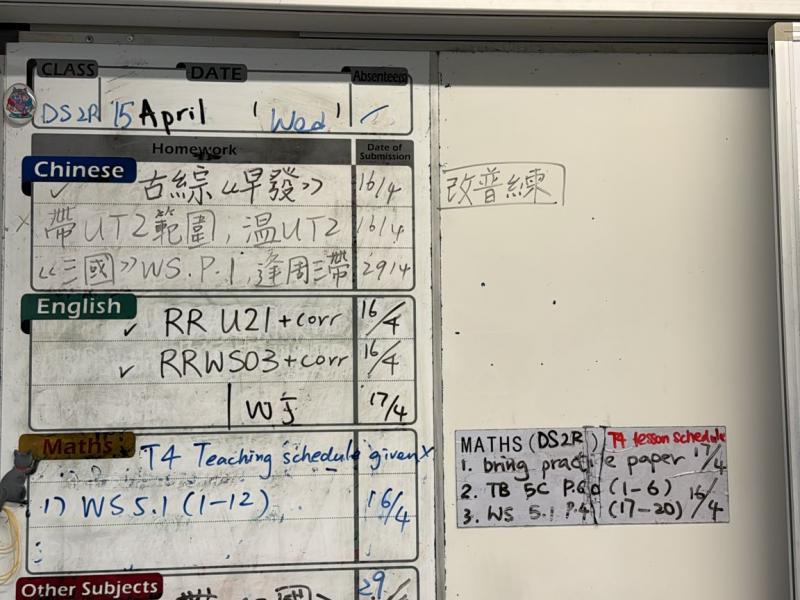 CLASS DATE Absentees
DS2R 15 April (Wed)
Homework Date of Submission
Chinese
✓ 古綜《早發》 16/4
x 帶UT2範圍，溫UT2 16/4
《三國》WS.P.1，逢周三帶 29/4
改普練
English
✓ RR U21+corr 16/4
✓ RRWS03+corr 16/4
WJ 17/4
Maths
T4 Teaching schedule given x
1) WS 5.1 (1-12) 16/4
MATHS (DS2R) T4 lesson schedule
1. bring practice paper 17/4
2. TB 5C P.6 (1-6) 16/4
3. WS 5.1 P.4 (17-20)
Other Subjects
29